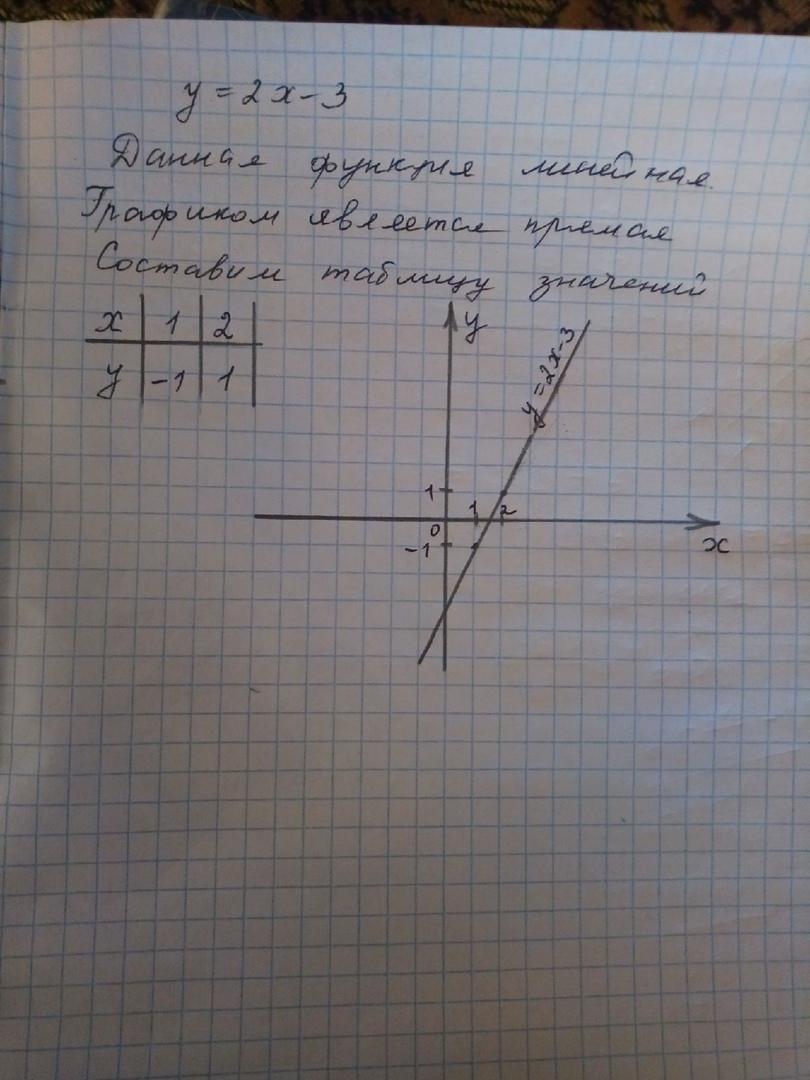 y = 2x - 3
Данная функция линейная.
Графиком является прямая
Составим таблицу значений
x 1 2
y -1 1
y
y = 2x-3
1
1 2
0
-1
x